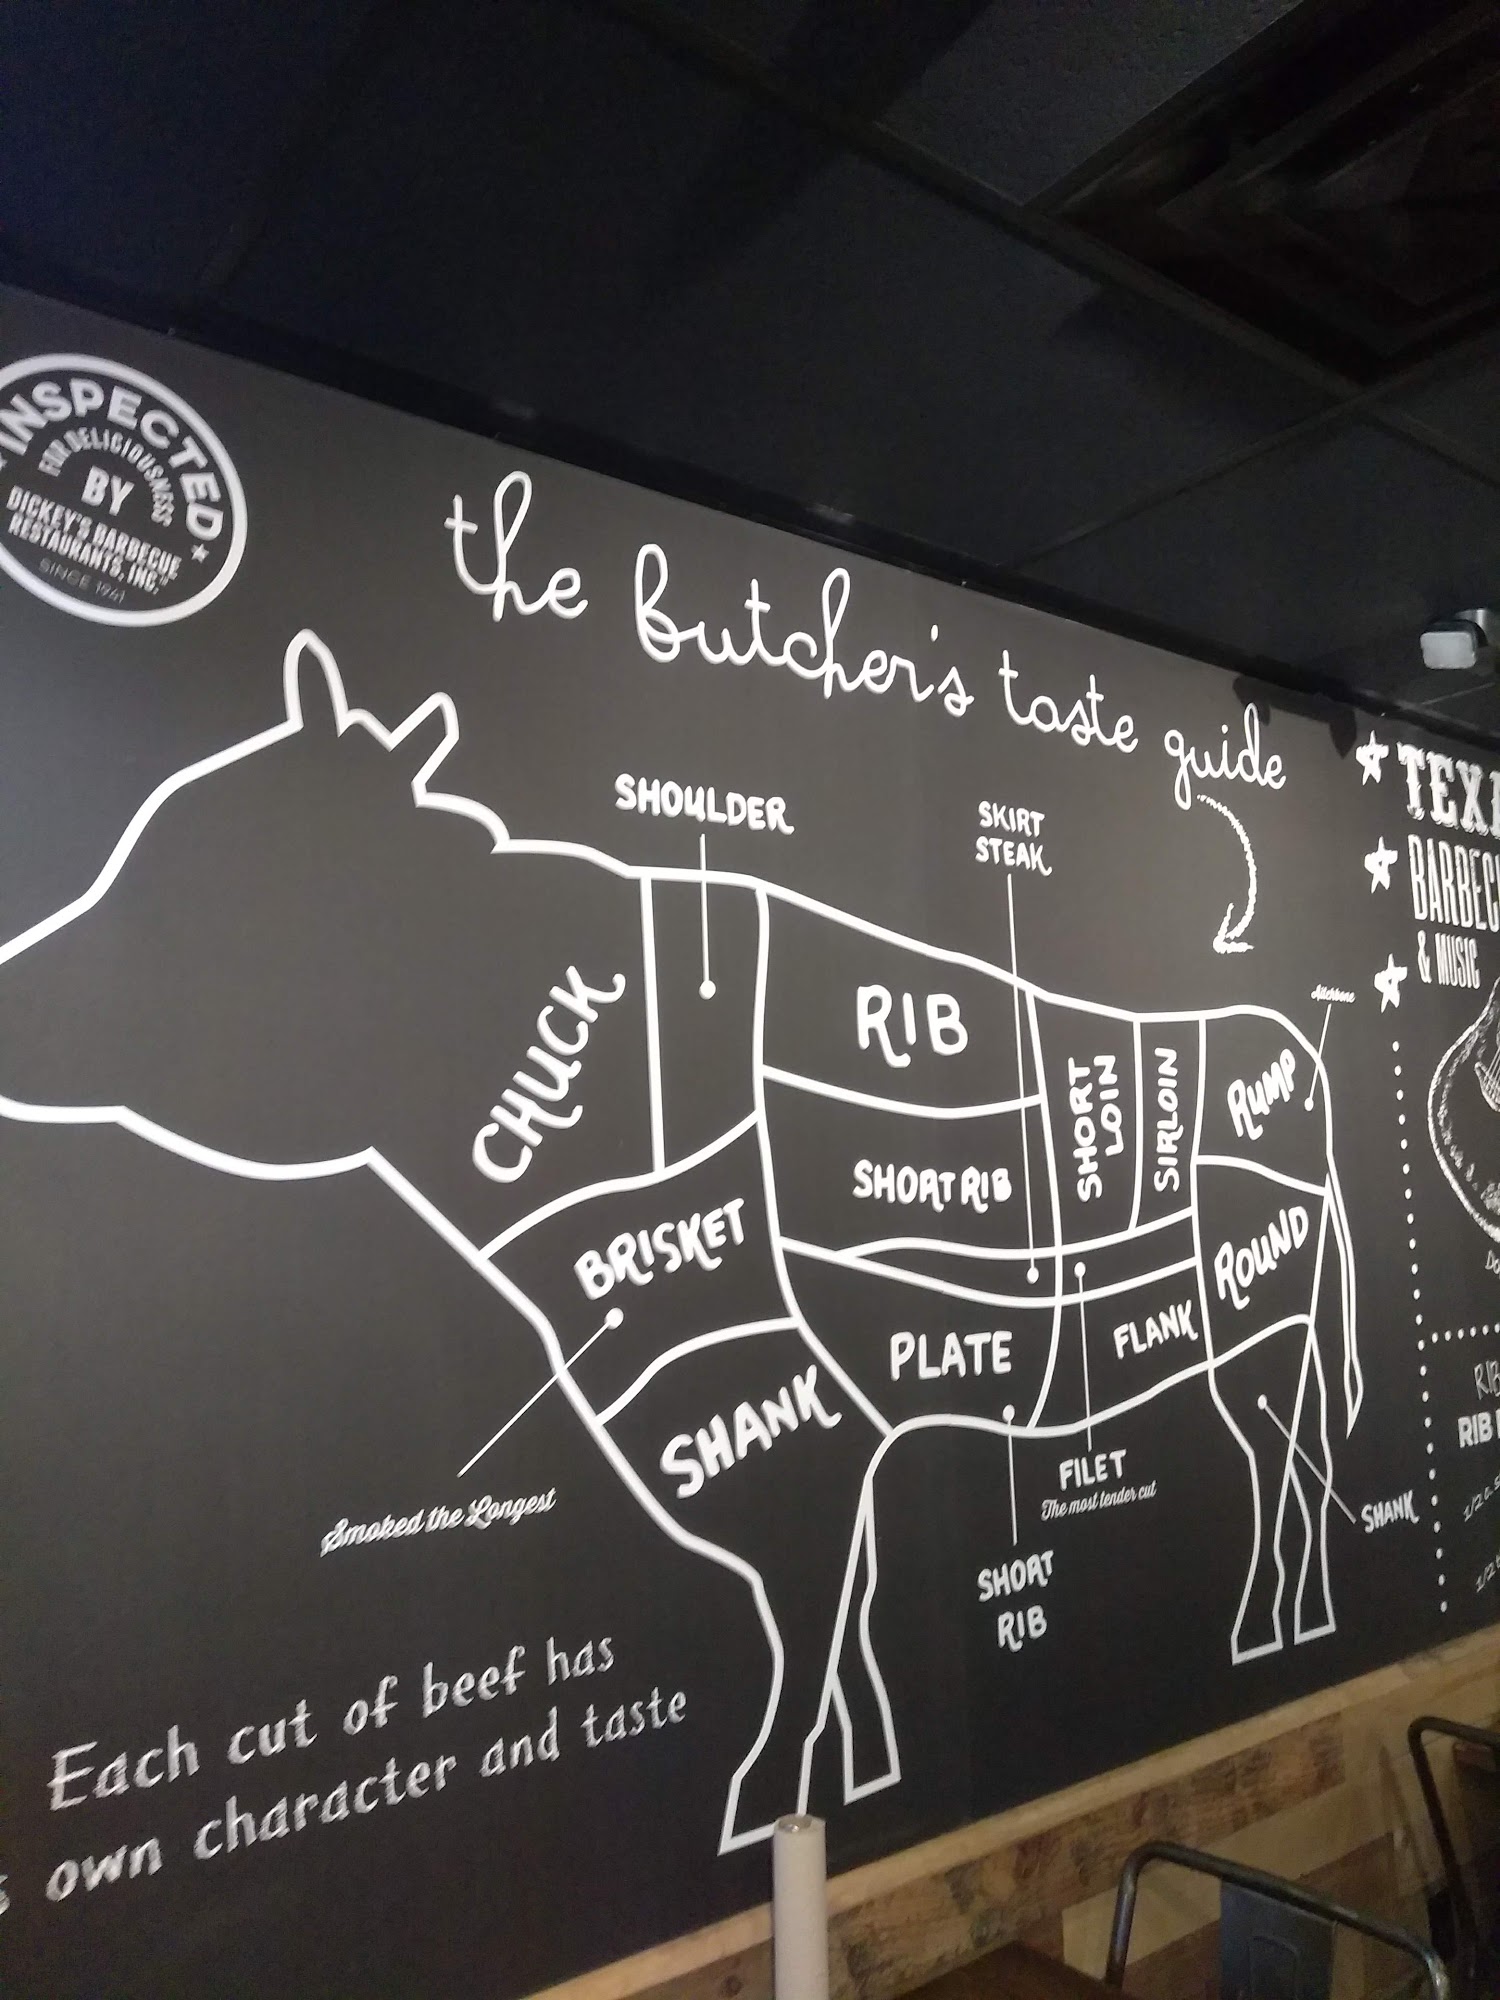 INSPECTED
FOR DELICIOUSNESS
BY
DICKEY'S BARBECUE
RESTAURANTS, INC.
SINCE 1941
the butcher's taste guide
SHOULDER
SKIRT
STEAK
CHUCK
RIB
SHORT RIB
SHORT
LOIN
SIRLOIN
RUMP
Aitchbone
BRISKET
ROUND
PLATE
FLANK
SHANK
Smoked the Longest
FILET
The most tender cut
SHORT
RIB
SHANK
Each cut of beef has
own character and taste
BARBEC
& MUSIC
RIB